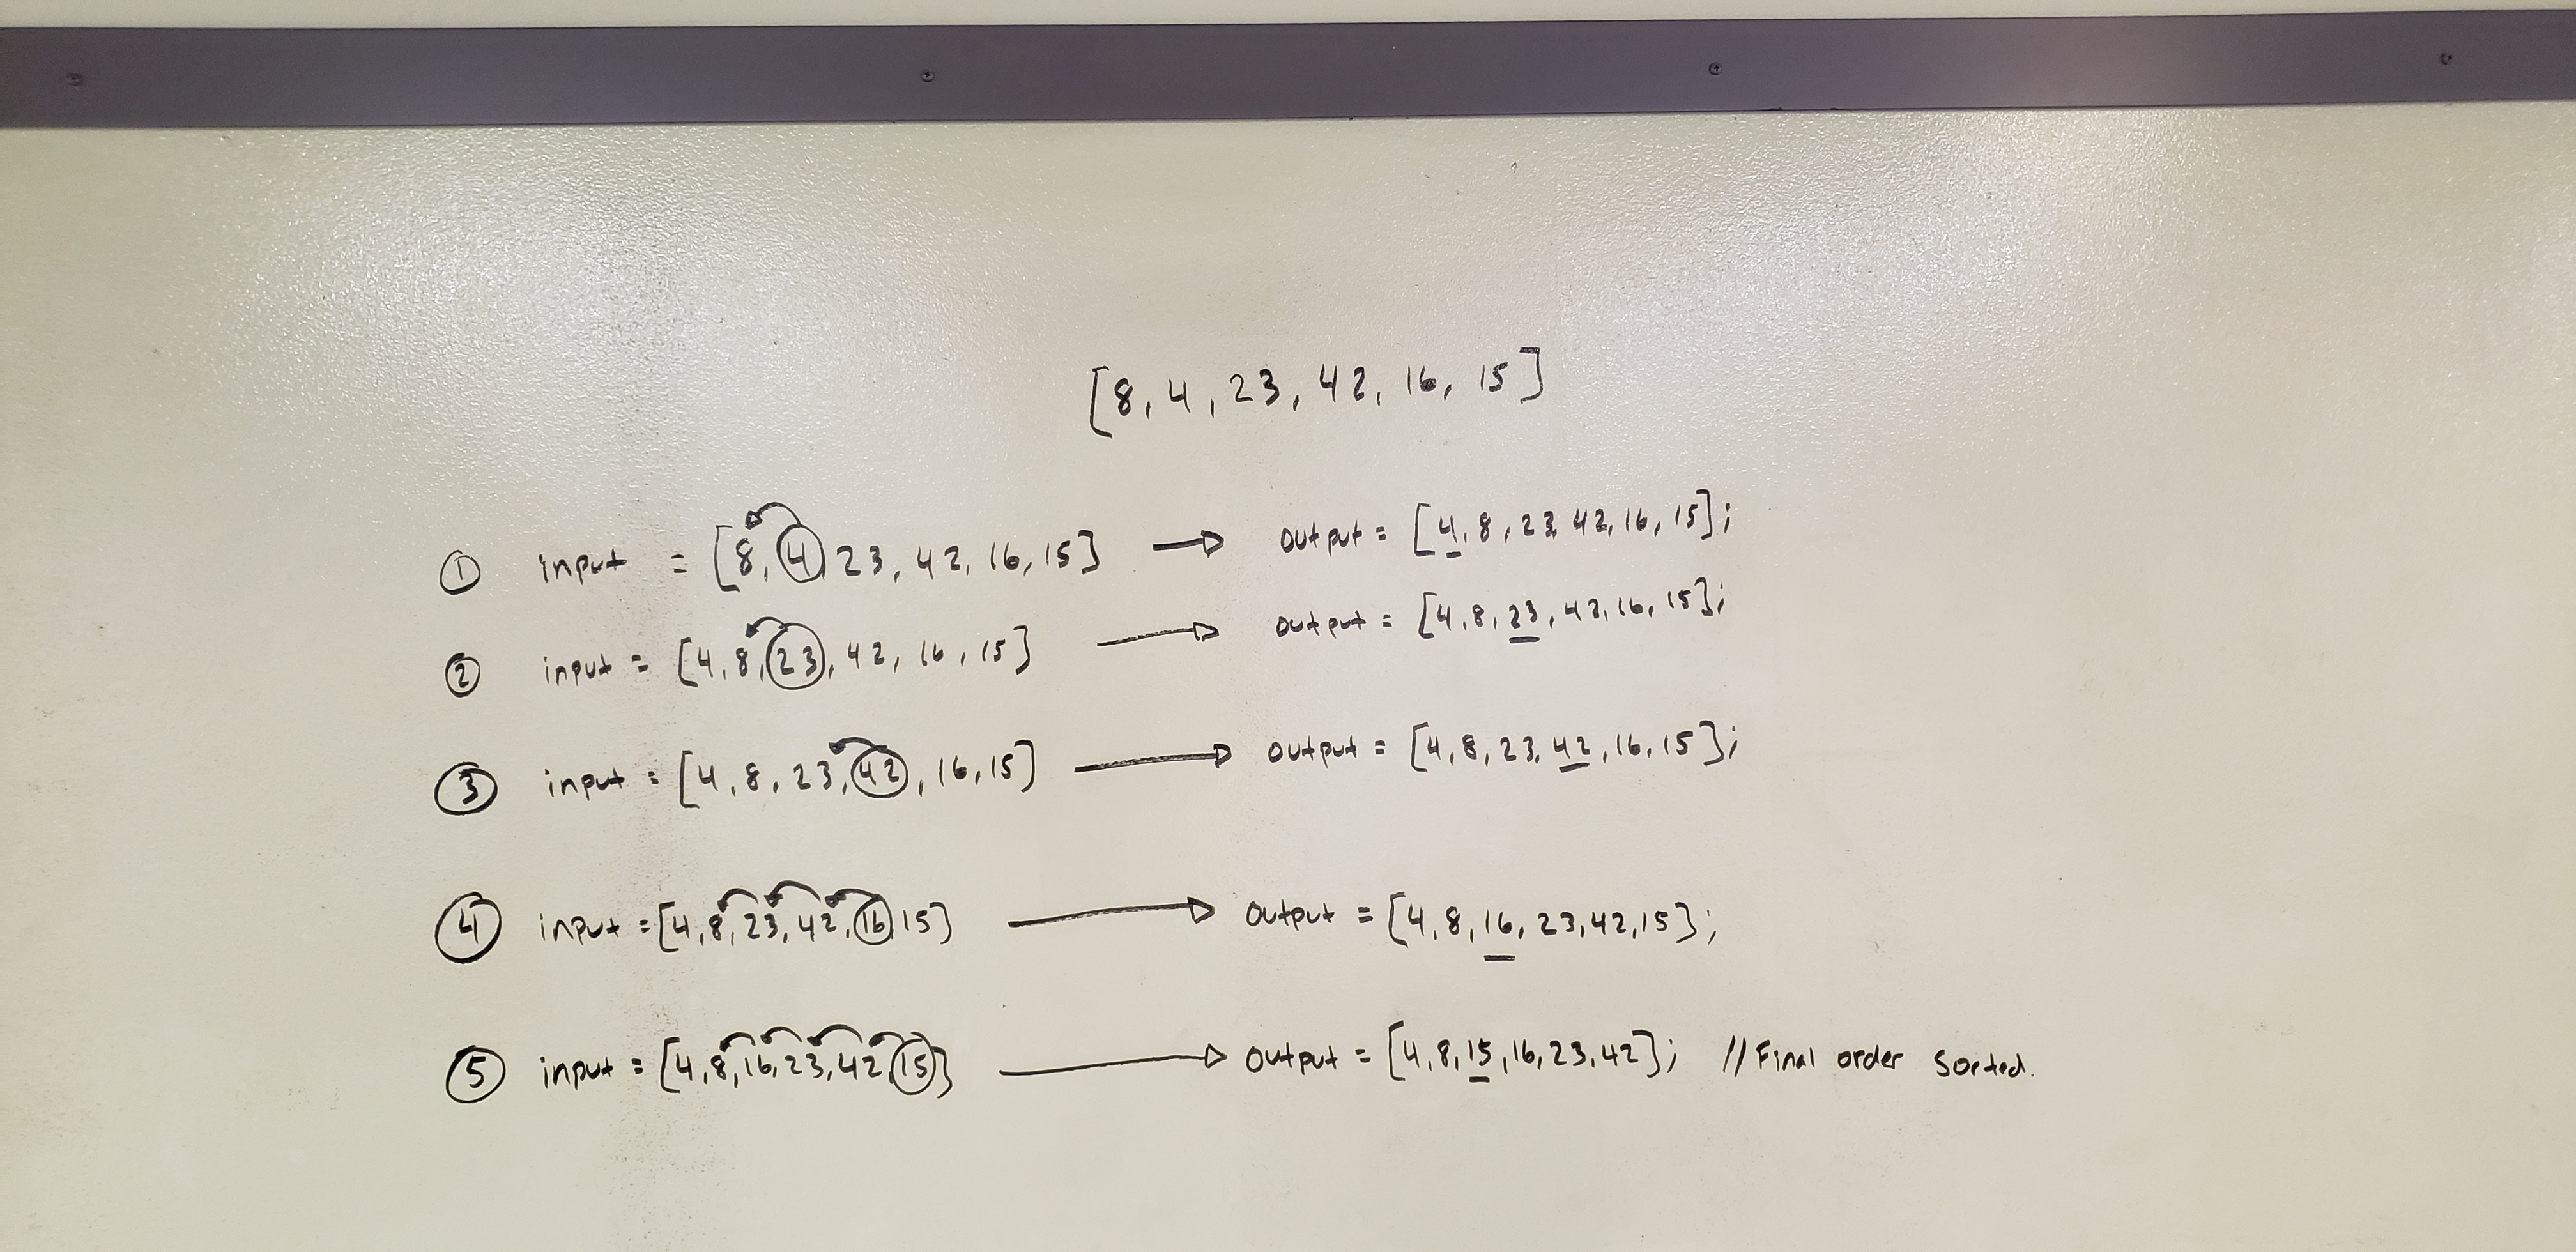 [8, 4, 23, 42, 16, 15]
① input = [8, 4, 23, 42, 16, 15] → output = [4, 8, 23, 42, 16, 15];
② input = [4, 8, 23, 42, 16, 15] → output = [4, 8, 23, 42, 16, 15];
③ input = [4, 8, 23, 42, 16, 15] → output = [4, 8, 23, 42, 16, 15];
④ input = [4, 8, 23, 42, 16, 15] → output = [4, 8, 16, 23, 42, 15];
⑤ input = [4, 8, 16, 23, 42, 15] → output = [4, 8, 15, 16, 23, 42]; // Final order sorted.